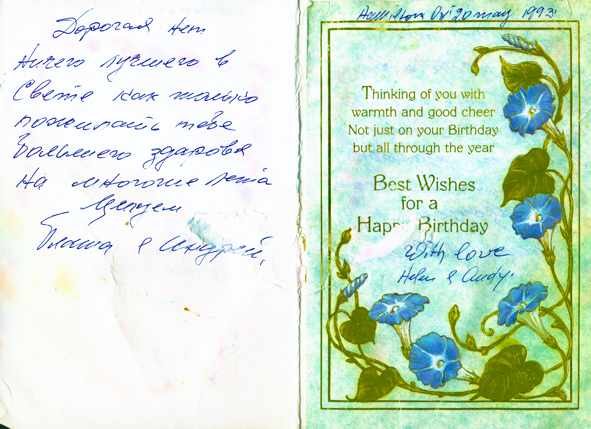 Дорогая
Ничего лучшего в
Свете как только
пожилать тебе
большего здаровя
на многоие лета
Целуем
и Андрей.
Hamilton 20 may 1993.
Thinking of you with
warmth and good cheer
Not just on your Birthday
but all through the year
Best Wishes
for a
Happy Birthday
With love
Helen & Andy.